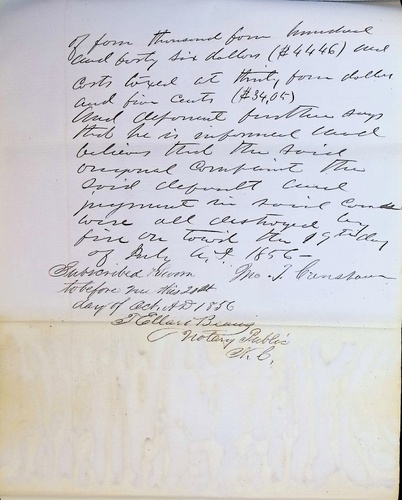 of four thousand four hundred
and forty six dollars ($4446) and
costs taxed at thirty four dollars
and five cents ($34,05)
And deponent further says
that he is informed and
believes that the said
original complaint the
said default and
judgment in said cause
were all destroyed by
fire on to wit the 19th day
of July A.D. 1856 -
Subscribed & sworn Jno. T.
to before me this
day of Oct. AD 1856
Notary Public